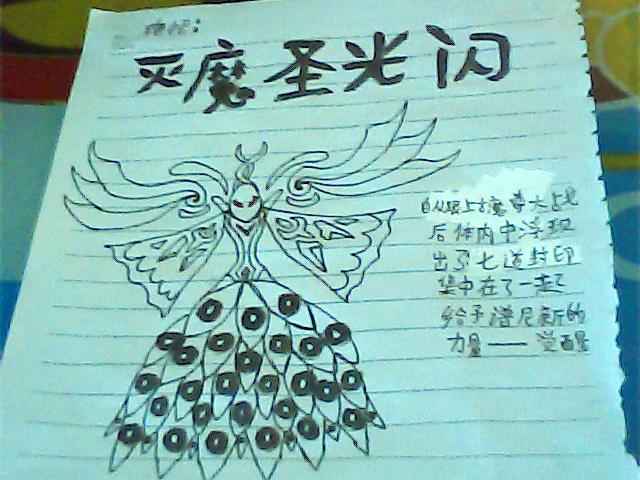 绝招：
灭魔圣光闪
自从跟上古魔尊大战
后体内中浮现
出了七道封印
集中在了一起
给予谱尼新的
力量——觉醒